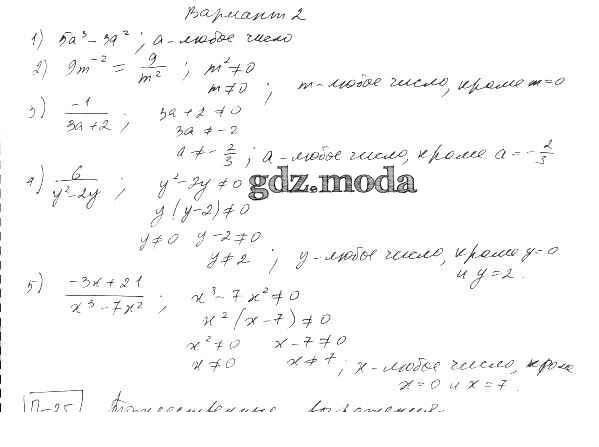 Вариант 2
1) 5a³ - 3a²; a - любое число
2) 9m⁻² = 9/m²; m² ≠ 0
m ≠ 0; m - любое число, кроме m = 0
3) -1/(3a+2); 3a + 2 ≠ 0
3a ≠ -2
a ≠ -2/3; a - любое число, кроме a = -2/3
4) 6/(y²-2y); y² - 2y ≠ 0
gdz.moda
y(y-2) ≠ 0
y ≠ 0 y - 2 ≠ 0
y ≠ 2; y - любое число, кроме y = 0
и y = 2.
5) (-3x+21)/(x³-7x²); x³ - 7x² ≠ 0
x²(x-7) ≠ 0
x² ≠ 0 x - 7 ≠ 0
x ≠ 0 x ≠ 7; x - любое число, кроме
x = 0 и x = 7.
П-25 Тождественные выражения